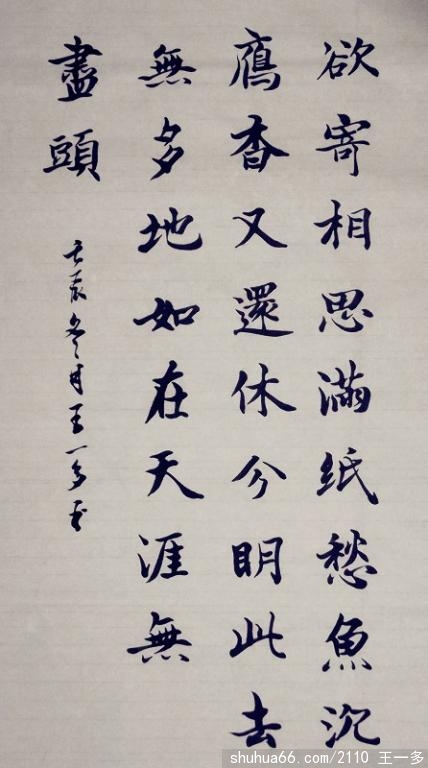 欲寄相思滿紙愁魚沉
鴈杳又還休分明此去
無多地如在天涯無
盡頭
壬辰冬月王一多書
shuhua66.com/2110 王一多